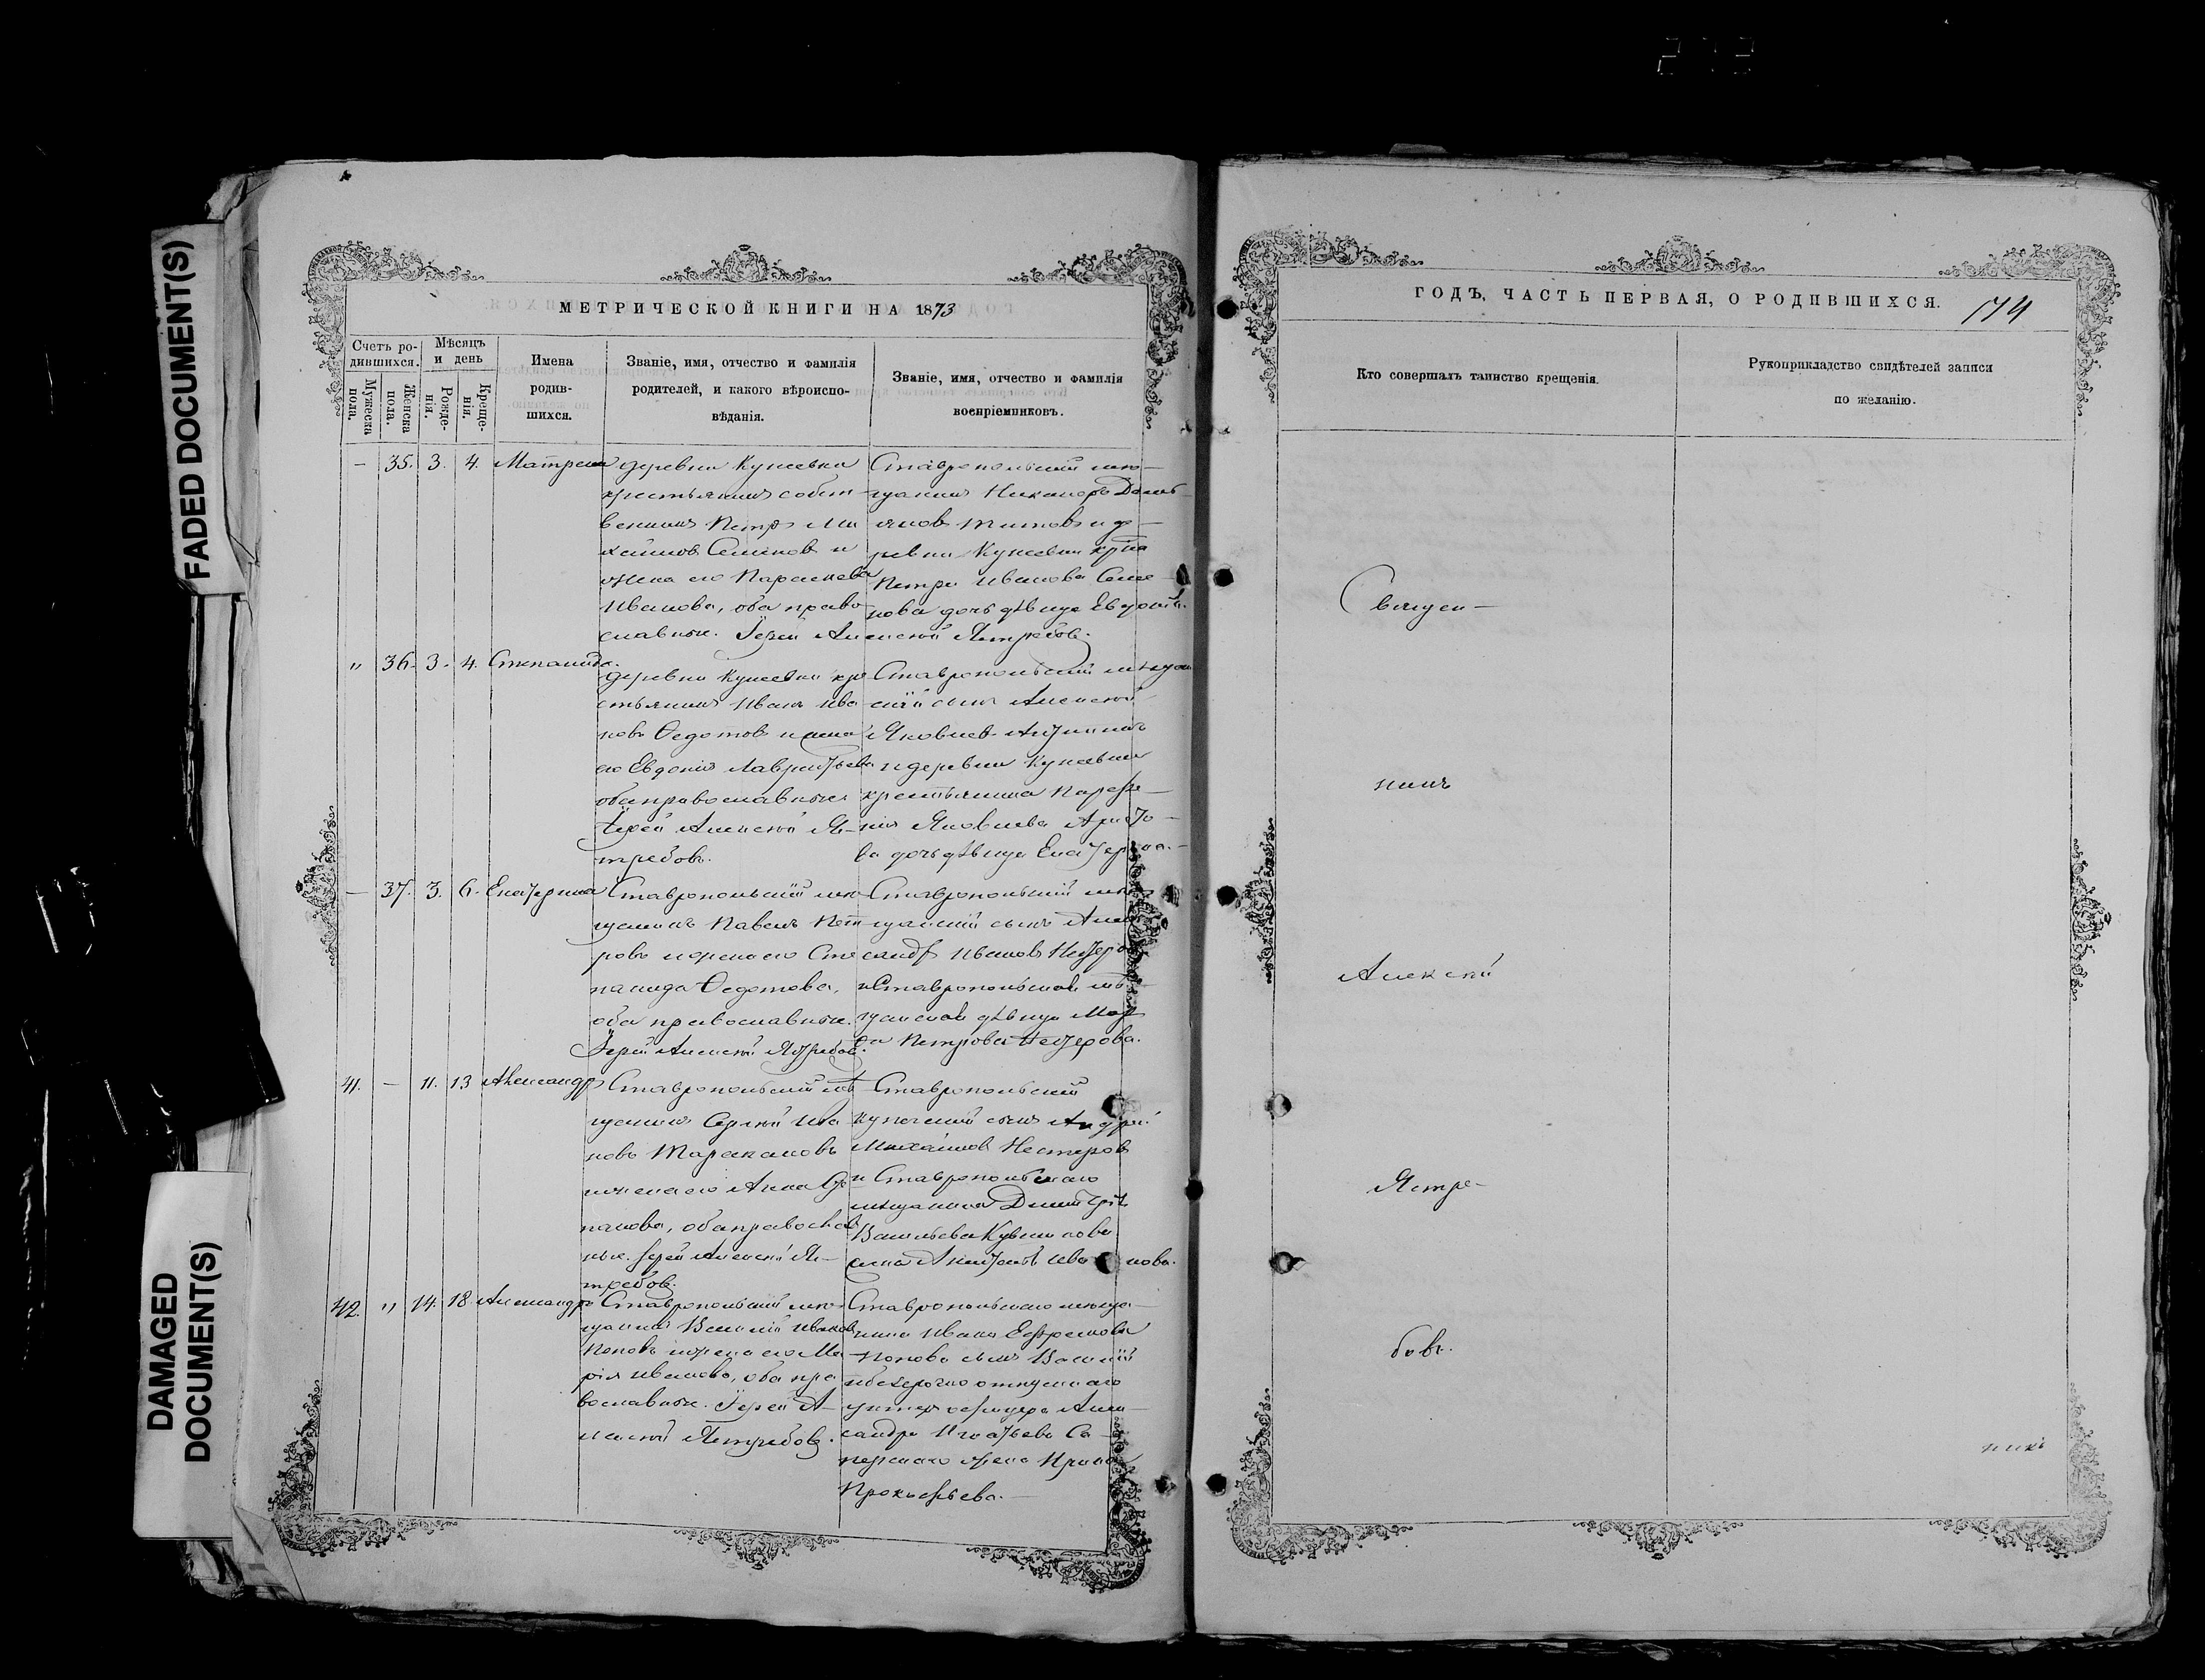 FADED DOCUMENT(S)
DAMAGED
DOCUMENT(S)
МЕТРИЧЕСКОЙ КНИГИ НА 1873
Счетъ ро-
дившихся.
Мужеска
пола.
Женска
пола.
Мѣсяцъ
и день
Рожде-
нія.
Креще-
нія.
Имена
родив-
шихся.
Званіе, имя, отчество и фамилія
родителей, и какого вѣроиспо-
вѣданія.
Званіе, имя, отчество и фамилія
воспріемниковъ.
— 35. 3. 4. Матрена
деревни Кунеевки
крестьянинъ собст-
венникъ Петръ Ми
хайловъ Семеновъ и
жена его Параскева
Иванова, оба право
славные. Іерей Алексей Ястребовъ.
Ставропольскій мѣ—
щанинъ Никаноръ Демь
яновъ Титовъ и де—
ревни Кунеевки
Петра Иванова Семе—
нова дочь дѣвица
" 36. 3. 4. Степанида.
деревни Кунеевки кре
стьянинъ Иванъ Ива
новъ Ѳедотовъ и жена
его Евдокія Лаврентьева
оба православные
Іерей Алексей Яс-
требовъ.
Ставропольскій мѣщан
скій сынъ Алексей
Яковлевъ
и деревни Кунеевки
крестьянина
Яковлева
ва дочь дѣвица Екатерина.
— 37. 3. 6. Екатерина
Ставропольскій мѣ
щанинъ Павелъ Пет
ровъ и жена его Сте
панида Ѳедотова,
оба православные.
Іерей Алексей Ястребовъ.
Ставропольскій мѣ
щанскій сынъ Алек
сандръ Ивановъ
и Ставропольская мѣ
щанская дѣвица
Петрова
41. — 11. 13 Александръ
Ставропольскій мѣ
щанинъ Сергей Ива
новъ Таракановъ
и жена его Анна Сте
панова, оба православ
ные. Іерей Алексей Яс—
требовъ.
Ставропольскій
купеческій сынъ Андрей
Михайловъ Нестеровъ
и Ставропольскаго
мѣщанина Димитрія
Васильева
жена Иванова.
42. " 14. 18. Александръ
Ставропольскій мѣ—
щанинъ Василій Ивановъ
Поповъ и жена его Ма
рія Иванова, оба пра
вославные. Іерей А—
лексей Ястребовъ.
Ставропольскаго мѣща—
нина Ивана Ефремова
Попова сынъ Василій
и безсрочно отпускнаго
унтеръ офицера Алек—
сандра Игнатьева Са—
перскаго жена Ирина
Прокофьева.—
ГОДЪ, ЧАСТЬ ПЕРВАЯ, О РОДИВШИХСЯ.
174
Кто совершалъ таинство крещенія.
Рукоприкладство свидѣтелей записи
по желанію.
Священ—
никъ
Алексей
Ястре-
бовъ.
никъ